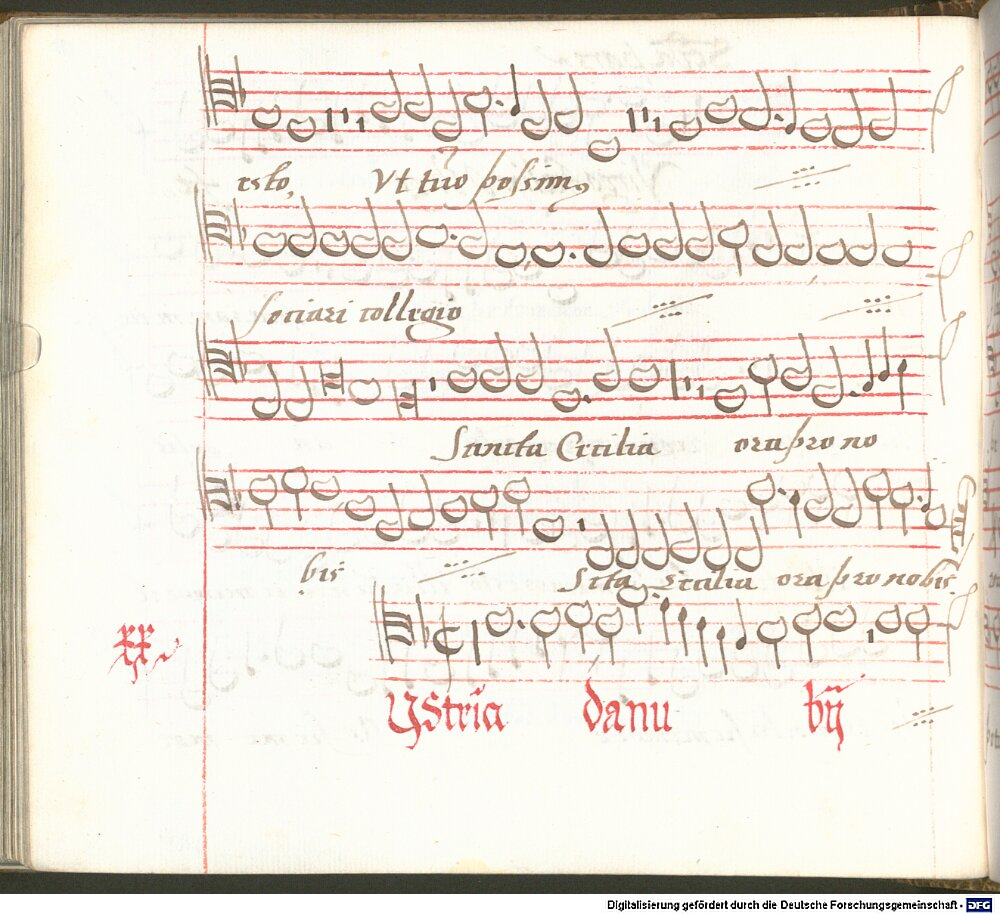 esto, Vt tuo possim9
sociari collegio
Sancta Cecilia ora pro no
bis Scta Cecilia ora pro nobis.
xx
YStria danu bij
Digitalisierung gefördert durch die Deutsche Forschungsgemeinschaft - DFG